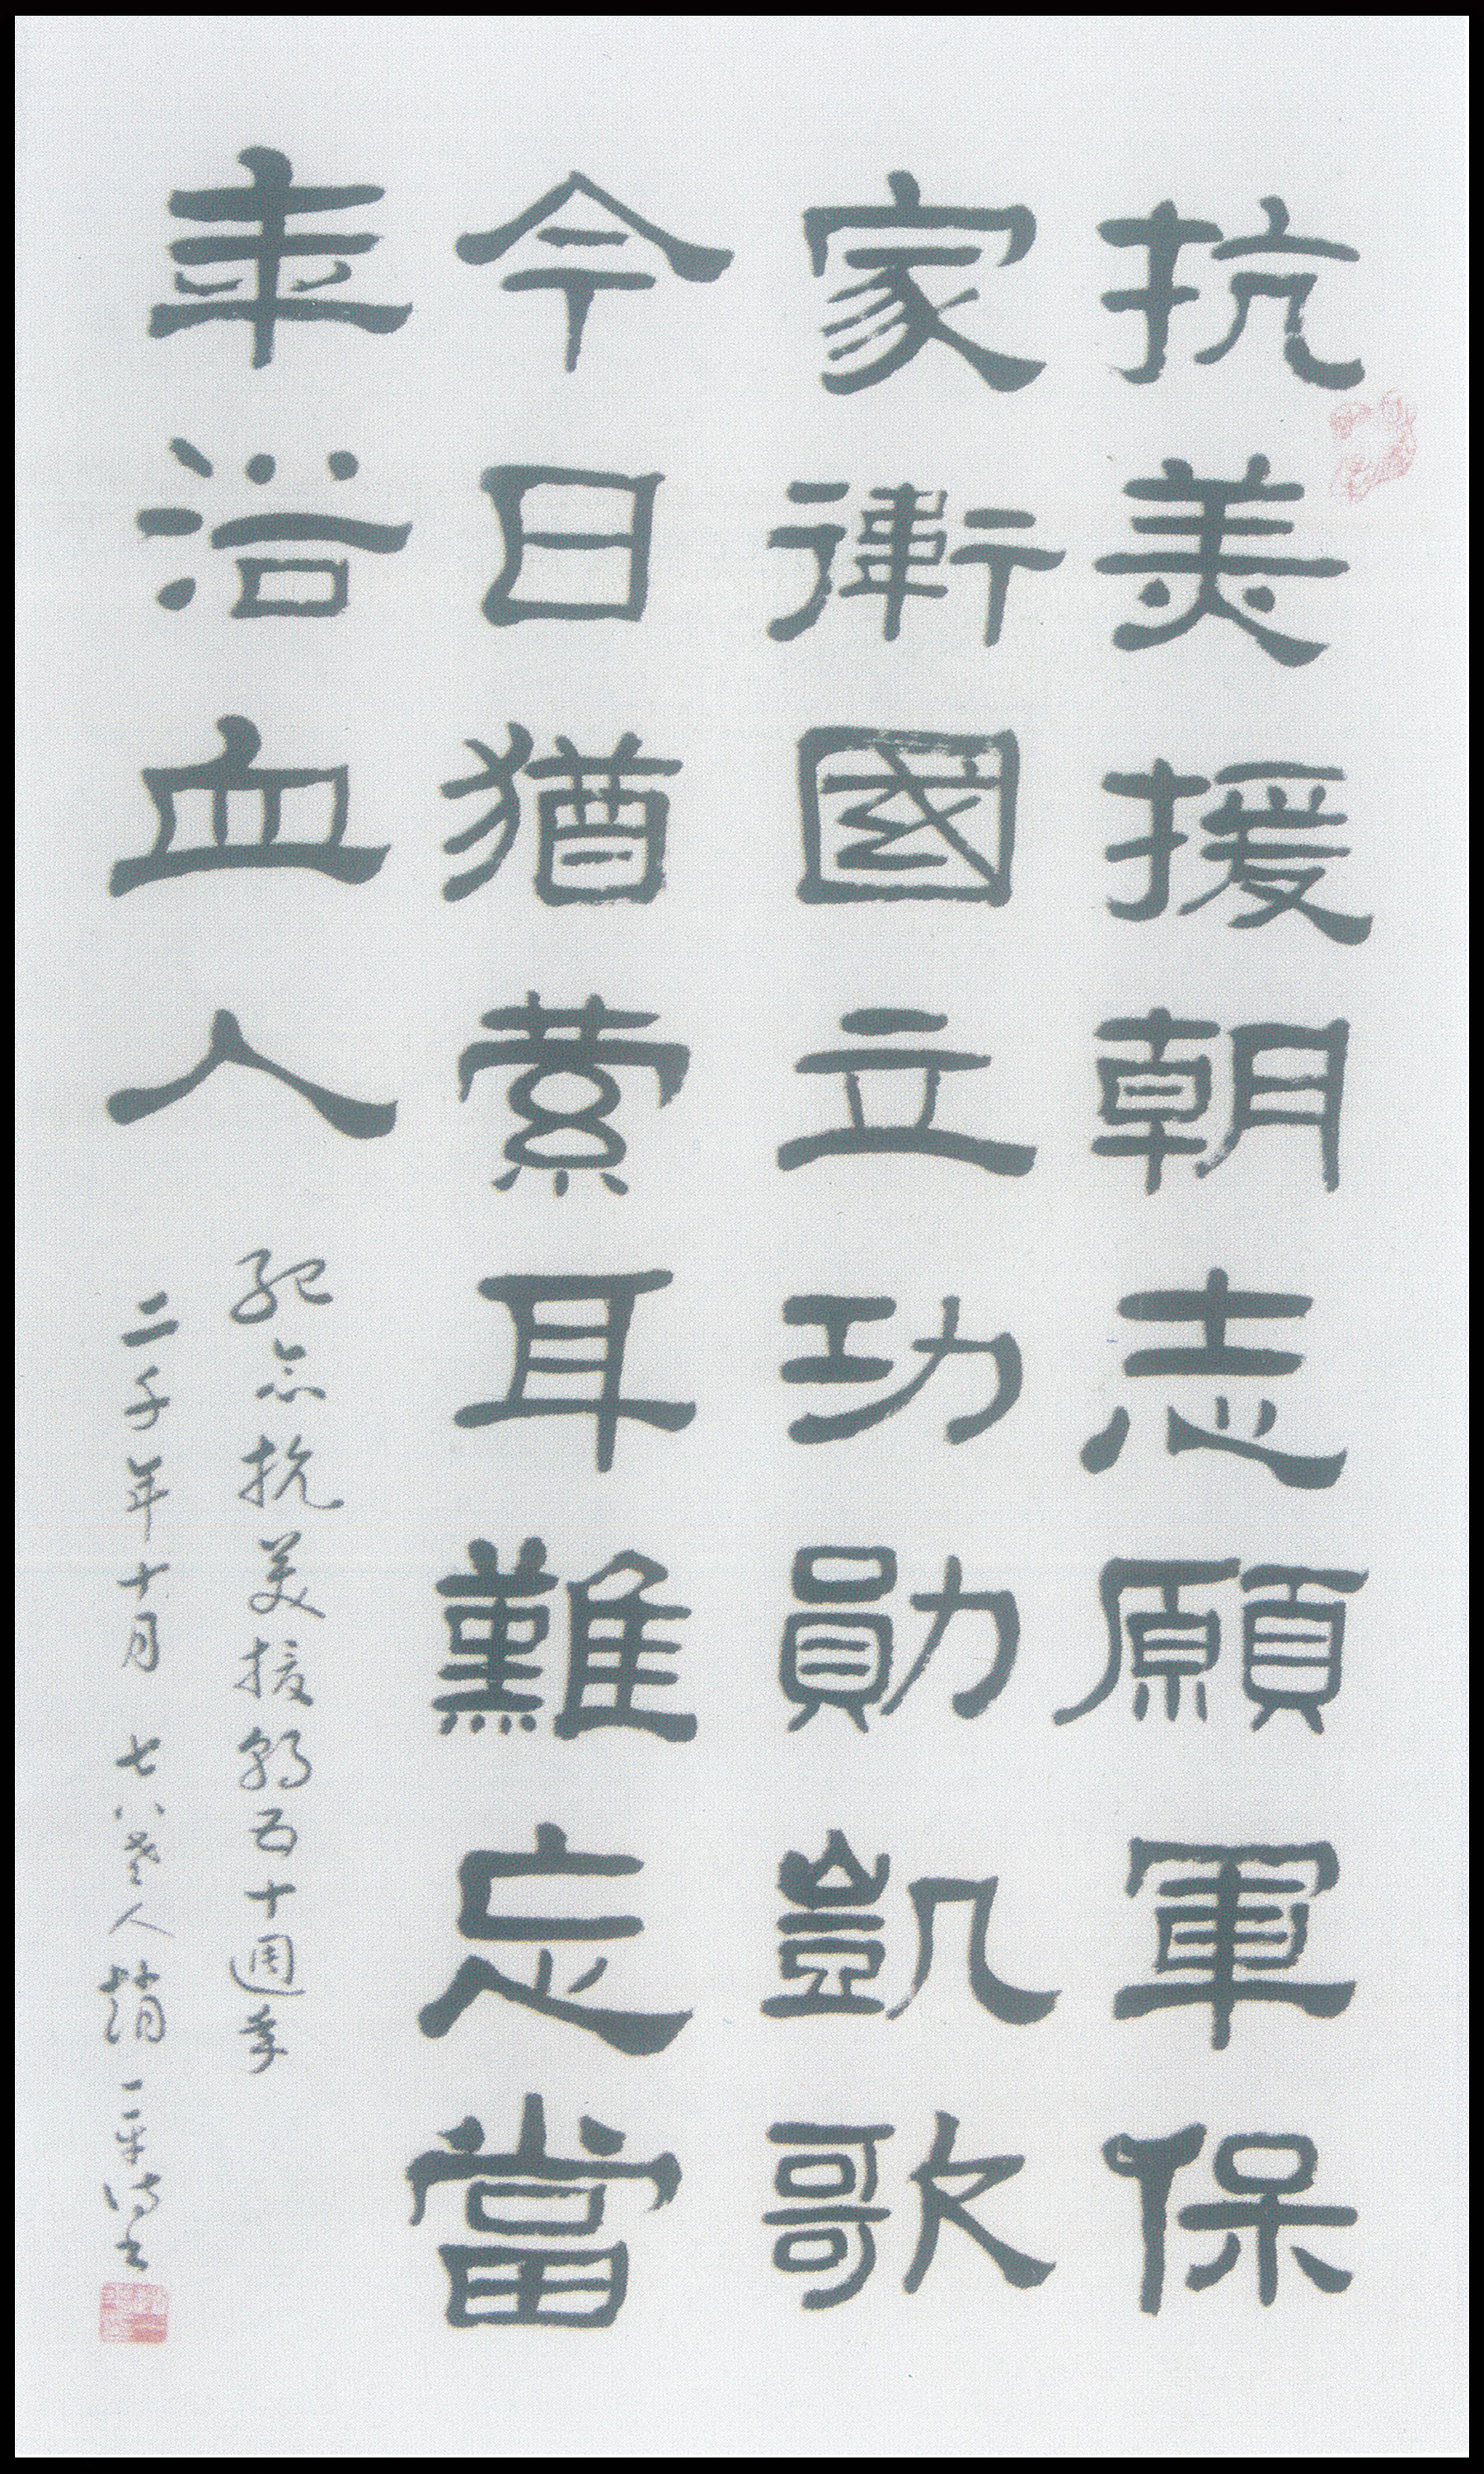 抗美援朝志願軍保
家衛國立功勛凱歌
今日猶縈耳難忘當
年浴血人
紀念抗美援朝五十週年
二千年十月 七八老人趙一平詩書